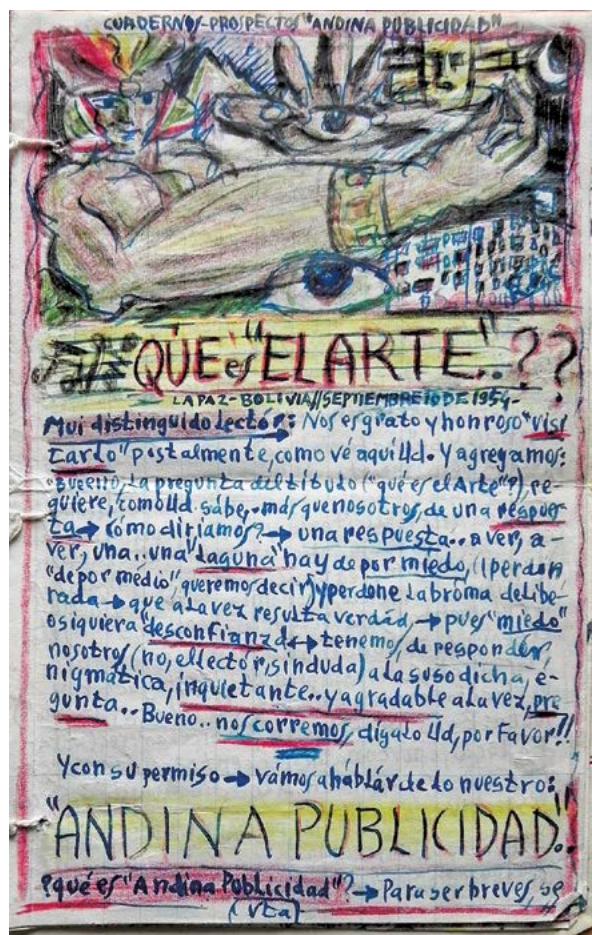 CUADERNOS-PROSPECTOS "ANDINA PUBLICIDAD"
QUE es "EL ARTE".??
LA PAZ-BOLIVIA//SEPTIEMBRE 10 DE 1954-
Mui distinguido lectór: Nos es grato y honroso "visi
tarlo" postalmente, como vé aquí Ud. Y agregamos:
"Bueeno, La pregunta del título ("qué es el Arte"?), re-
quiere, como Ud. sábe.. más que nosotros, de una respues
ta → cómo diriamos? → una respuesta.. a ver, a-
ver, una.. una "laguna" hay de por miedo, (¡perdon
"de por médio", queremos decir) y perdone La bróma delibe-
rada → que a la vez resulta verdád, → pues "miedo"
o siquiera "desconfianza" → tenemos, de respondér,
nosotros (no, el lectór, sin duda) a la susodicha, e-
nigmática, inquietante.. y agradable a la vez, pre
gunta.. Bueno.. nos corremos, dígalo Ud, por Favor!!
Y con su permiso → vámos a háblár de lo nuestro:
"ANDINA PUBLICIDAD"..
?qué és "Andina Publicidad"? → Para ser breves, se
(vta)